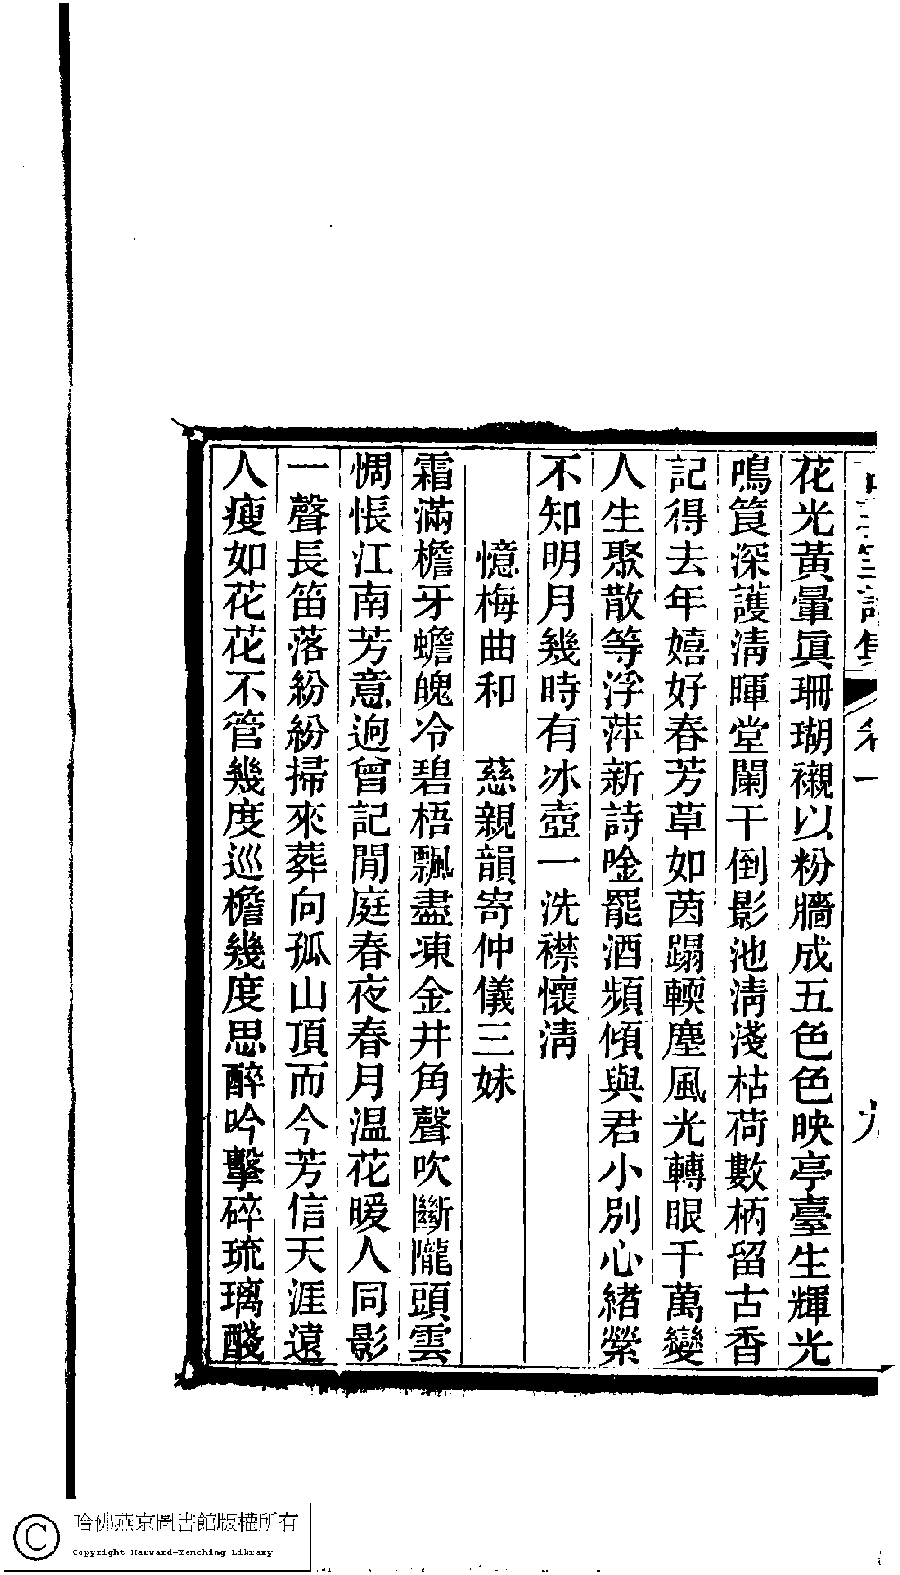 花光黃暈眞珊瑚襯以粉牆成五色色映亭臺生輝光
鳴筤深護淸暉堂闌干倒影池淸淺枯荷數柄留古香
記得去年嬉好春芳草如茵蹋輭塵風光轉眼千萬變
人生聚散等浮萍新詩唫罷酒頻傾與君小別心緒縈
不知明月幾時有冰壺一洗襟懷淸
憶梅曲和　慈親韻寄仲儀三妹
霜滿檐牙蟾魄冷碧梧飄盡涷金井角聲吹斷隴頭雲
惆悵江南芳意逈曾記閒庭春夜春月温花暖人同影
一聲長笛落紛紛掃來葬向孤山頂而今芳信天涯遠
人瘦如花花不管幾度巡檐幾度思醉吟擊碎琉璃醆
哈佛燕京圖書館版權所有
Copyright Harvard-Yenching Library